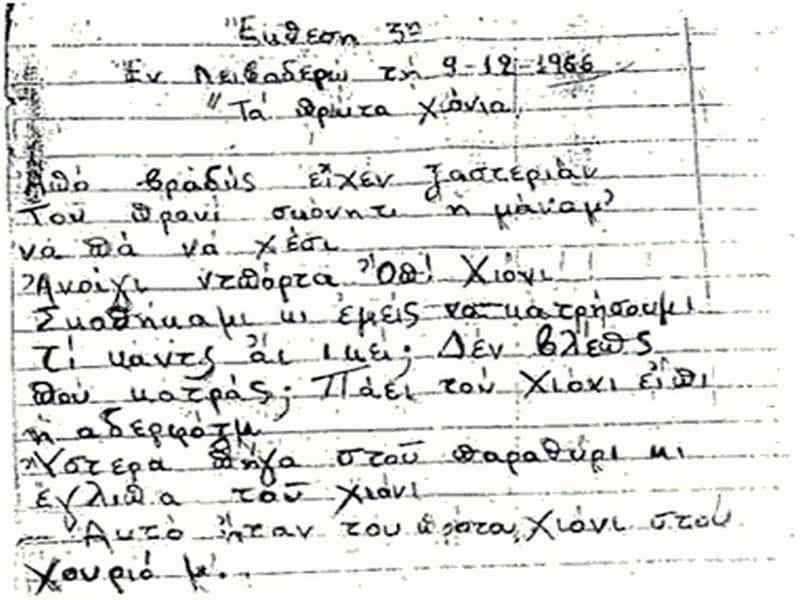 Ἔκθεση 3η
Ἐν Λειβαδερῷ τῇ 9-12-1966
"Τά πρῶτα χιόνια
Ἀπό βραδύς εἶχεν ξαστεριάν
Τοῦ πρανί σκόνητι ἡ μάναμ'
νά πά νά χέσι
Ἀνοίγι ντπόρτα Ὀπ! Χιόνι!!
Σκαθήκαμι κι ἐμείς να κατρήσουμι
Τί κάντς ἀι ικεί; Δέν βλέπς
πού κατράς; Πάει τού Χιόνι εἶπι
ἡ αδερφότμ
Ὕστερα πῆγα στοῦ παραθύρι κι
ἐγλιπα τοῦ χιόνι
Αυτό ἦταν του πρώτου Χιόνι στού
χουριό μ'..